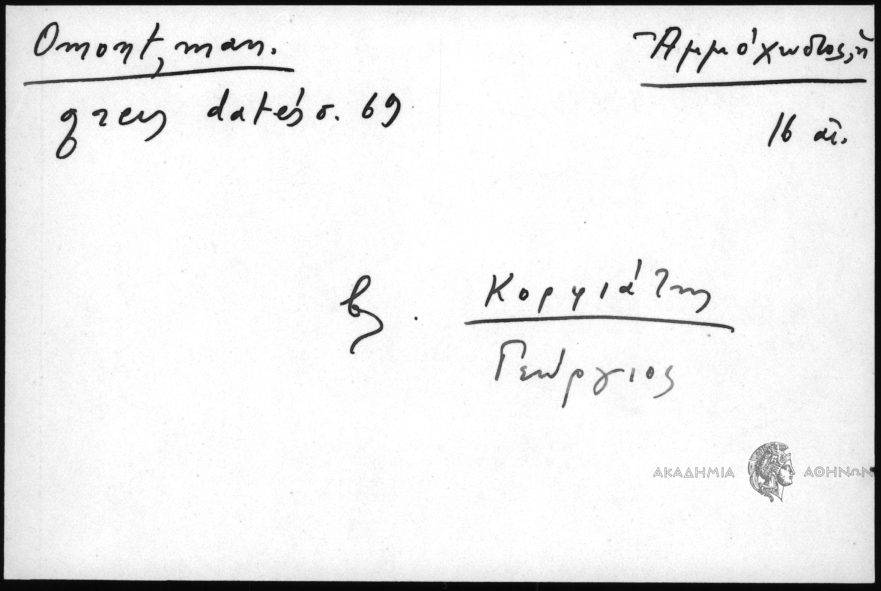 Omont, man.
grecs datés σ. 69
Ἀμμόχωστος, ἡ
16 αἰ.
Κορφιάτης
Γεώργιος
ΑΚΑΔΗΜΙΑ ΑΘΗΝΩΝ